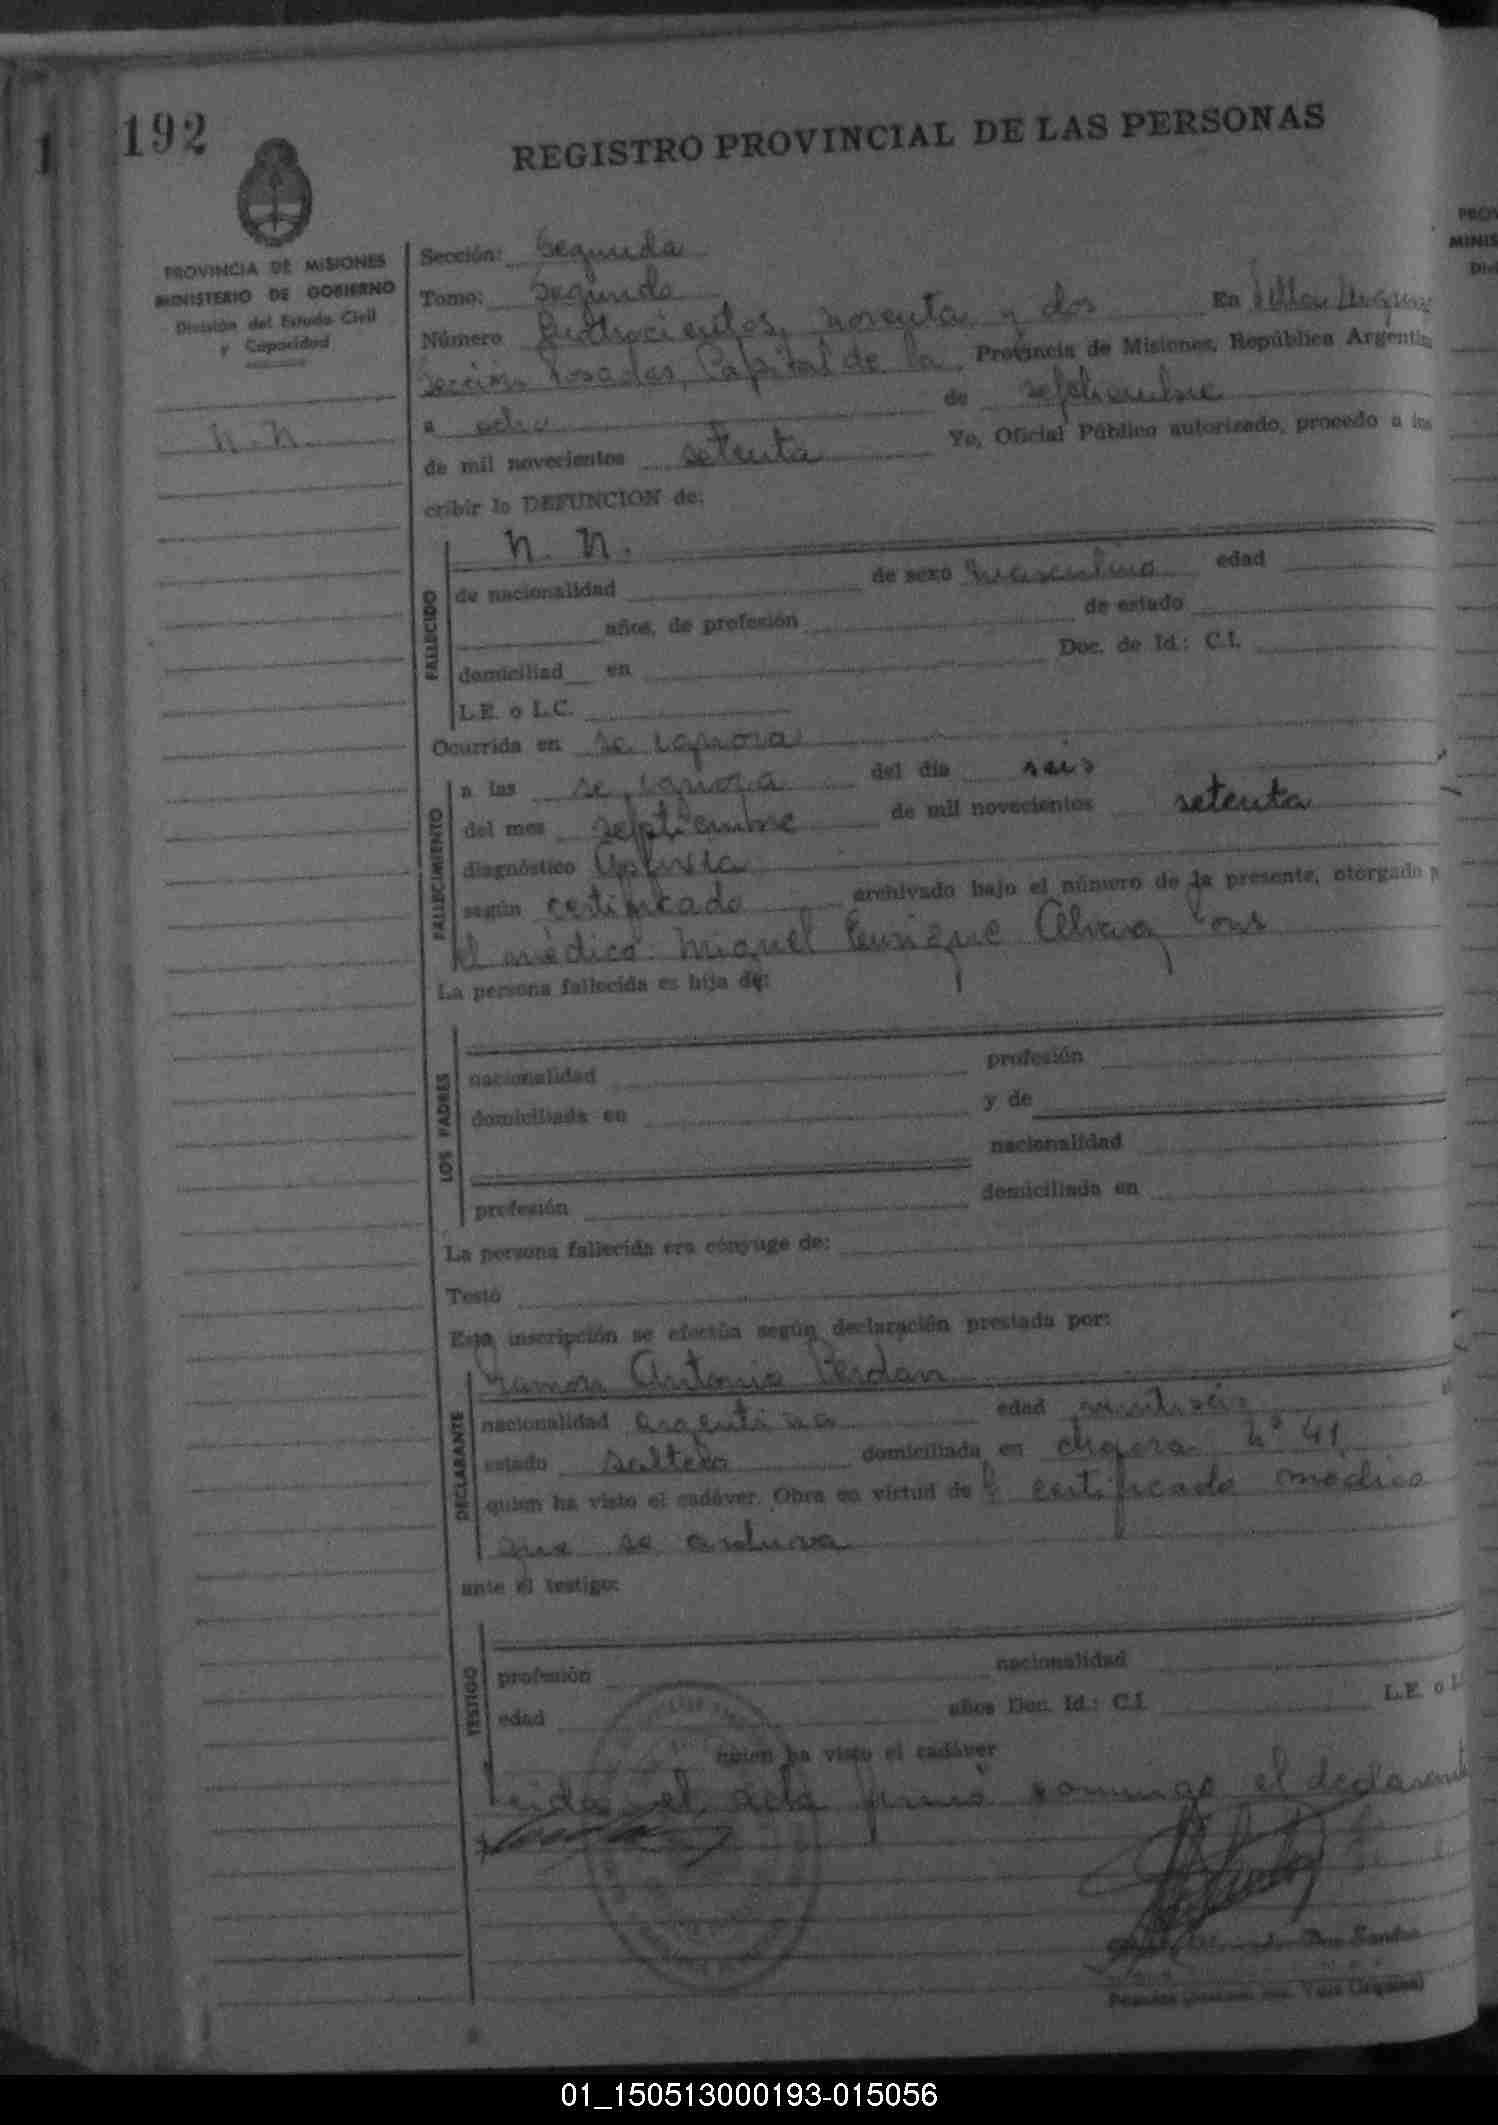 1 192
REGISTRO PROVINCIAL DE LAS PERSONAS
PROVINCIA DE MISIONES
MINISTERIO DE GOBIERNO
División del Estado Civil
y Capacidad
n.n.
Sección: Segunda
Tomo: Segundo
Número Cuatrocientos, noventa y dos En Villa Urquiza
sección Posadas, Capital de la, Provincia de Misiones, República Argentina
a ocho de septiembre
de mil novecientos setenta Yo, Oficial Público autorizado, procedo a ins
cribir lo DEFUNCION de:
FALLECIDO
n. n.
de nacionalidad de sexo masculino edad
años, de profesión de estado
domiciliad en Doc. de Id.: C.I.
L.E. o L.C.
Ocurrida en se ignora
FALLECIMIENTO
a las se ignora del día seis
del mes septiembre de mil novecientos setenta
diagnóstico Asfixia
según certificado archivado bajo el número de la presente, otorgado p
el médico: Miguel Enrique Alvarez
La persona fallecida es hija de:
LOS PADRES
nacionalidad profesión
domiciliada en y de
nacionalidad
profesión domiciliada en
La persona fallecida era cónyuge de:
Testó
Esta inscripción se efectúa según declaración prestada por:
DECLARANTE
Ramon Antonio
nacionalidad argentina edad
estado soltero domiciliada en chacra nº 41
quien ha visto el cadáver. Obra en virtud de l certificado médico
que se archiva
ante el testigo:
TESTIGO
profesión nacionalidad
edad años Doc. Id.: C.I. L.E. o L
quien ha visto el cadáver
Leida el acta firmó conmigo el declarante
Dos Santos
01_150513000193-015056